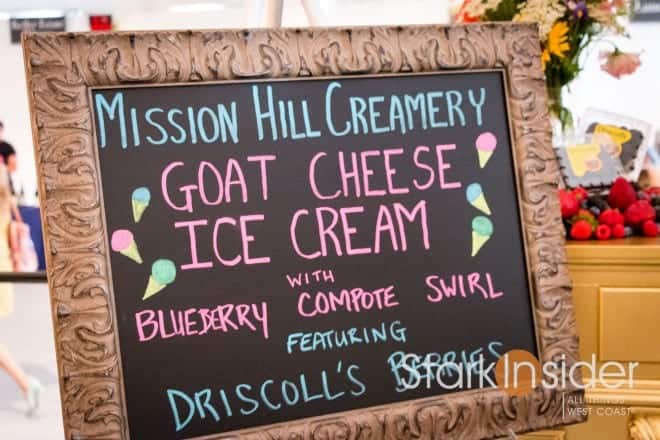 MISSION HILL CREAMERY
GOAT CHEESE
ICE CREAM
WITH
BLUEBERRY COMPOTE SWIRL
FEATURING
DRISCOLL'S BERRIES
StarkInsider
ALL THINGS
WEST COAST